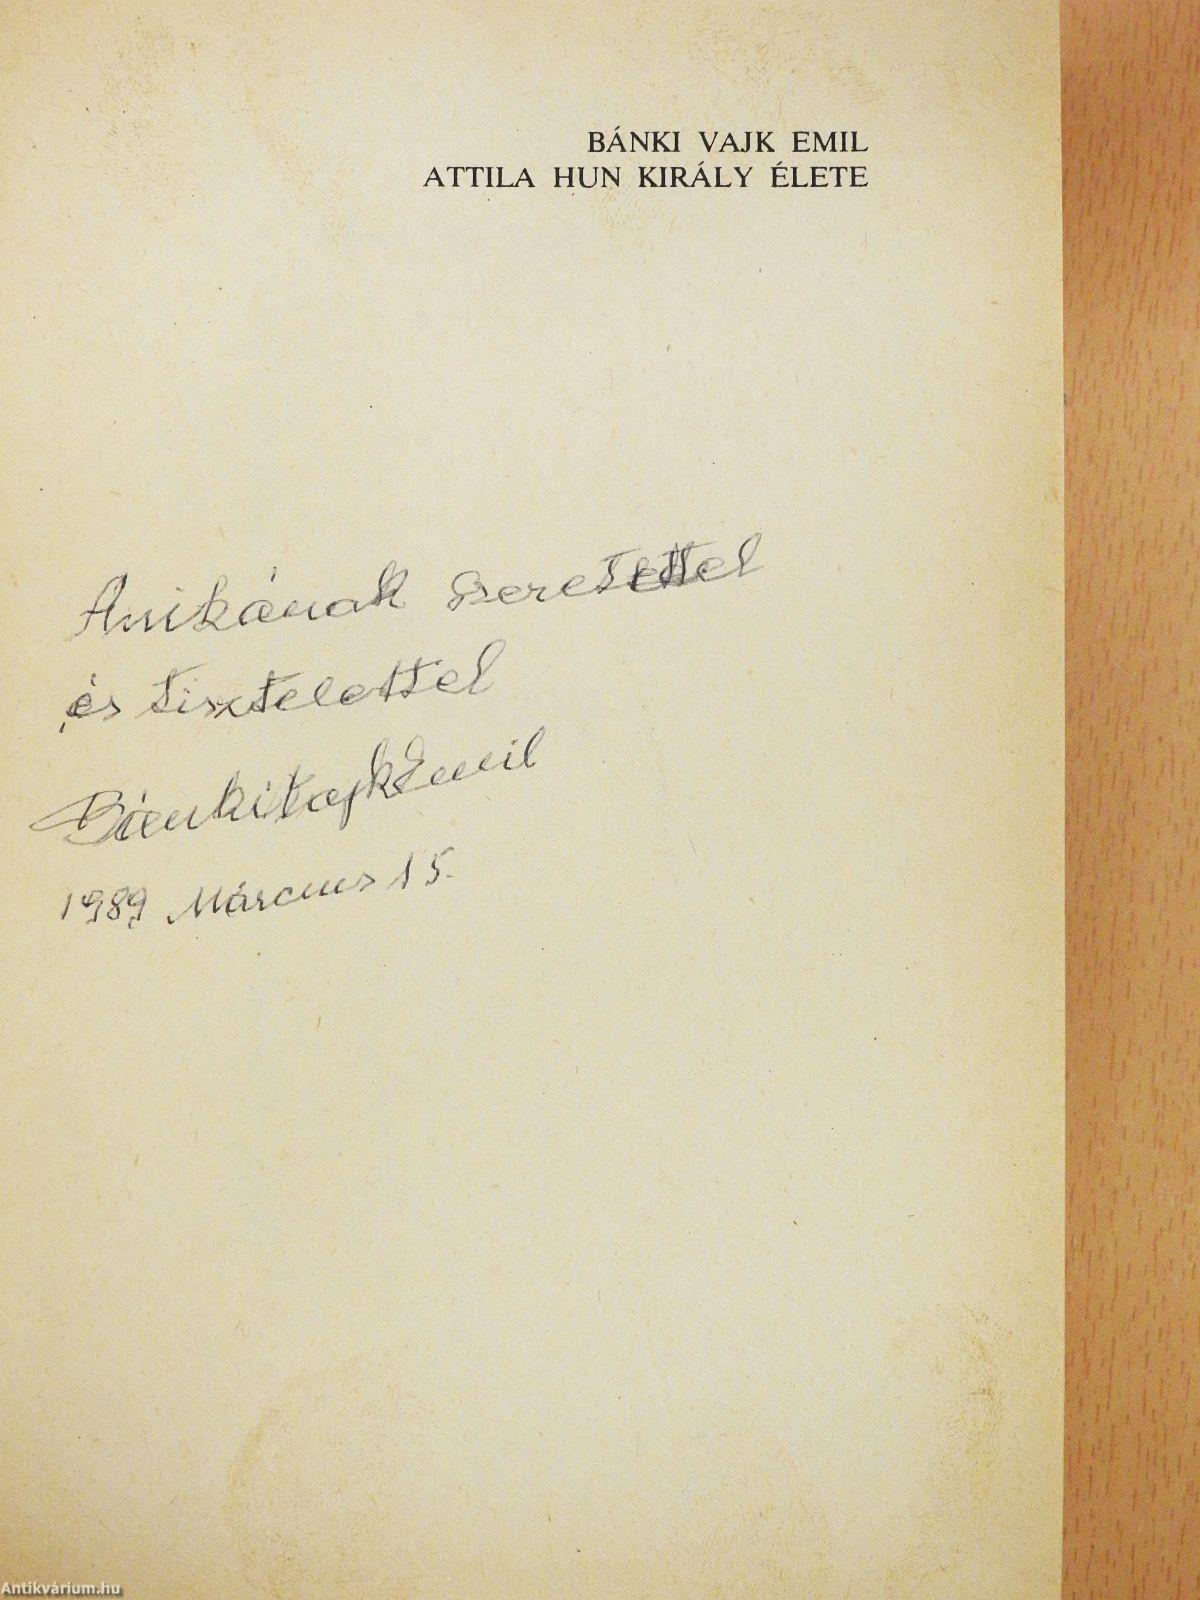 BÁNKI VAJK EMIL
ATTILA HUN KIRÁLY ÉLETE
Anikának szeretettel
és tisztelettel
Bánki Vajk Emil
1989 Március 15.
Antikvárium.hu